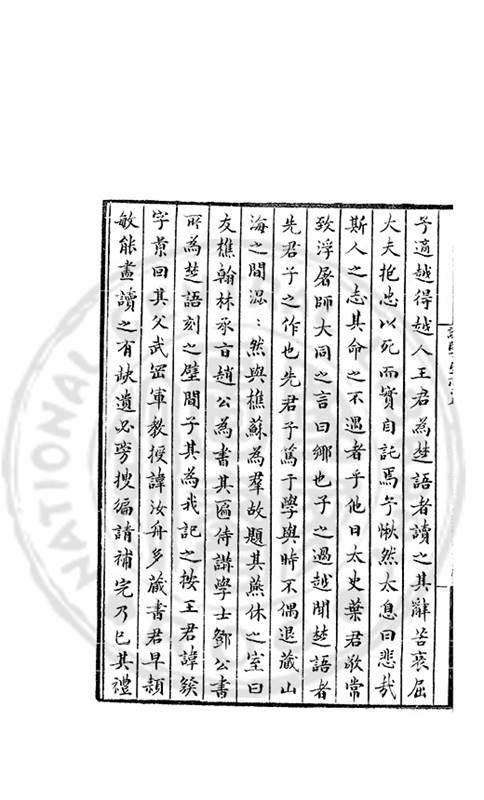 予適越得越人王君為楚語者讀之其辭苦哀屈
大夫抱忠以死而實自託焉乍愀然太息曰悲哉
斯人之志其命之不遇者乎他日太史葉君敬常
致浮屠師大同之言曰鄉也子之過越聞楚語者
先君子之作也先君子篤于學與時不偶退藏山
海之間混混然與樵蘇為羣故題其燕休之室曰
友樵翰林承旨趙公為書其匾侍講學士鄧公書
所為楚語刻之壁間子其為我記之按王君諱
字景回其父武岡軍教授諱汝舟多藏書君早穎
敏能盡讀之有缺遺必旁搜徧請補完乃已其禮
NATIONAL